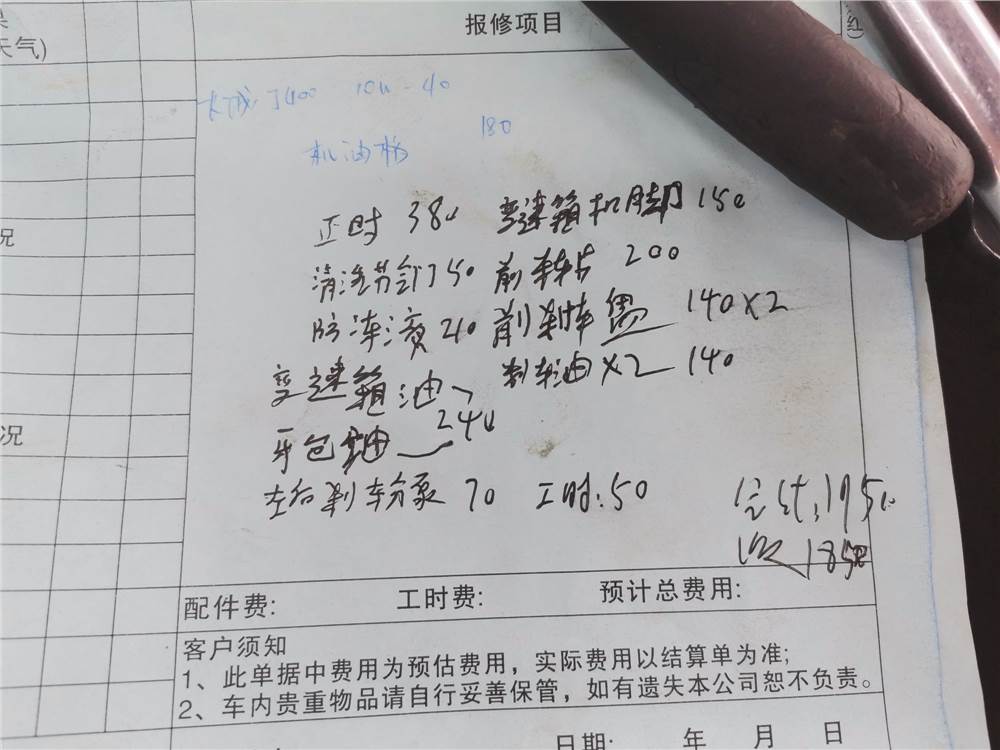 报修项目
天气)
长城 J400 10W-40
机油格 180
正时 380 变速箱机脚 150
清洗节气门 50 前车片 200
防冻液 40 前刹车盘 140×2
变速箱油、 刹车油×2 140
牙包油 240
左右刹车分泵 70 工时:50
况
况
合计:1950
收 1850
配件费: 工时费: 预计总费用:
客户须知
1、此单据中费用为预估费用,实际费用以结算单为准;
2、车内贵重物品请自行妥善保管,如有遗失本公司恕不负责。
日期: 年 月 日